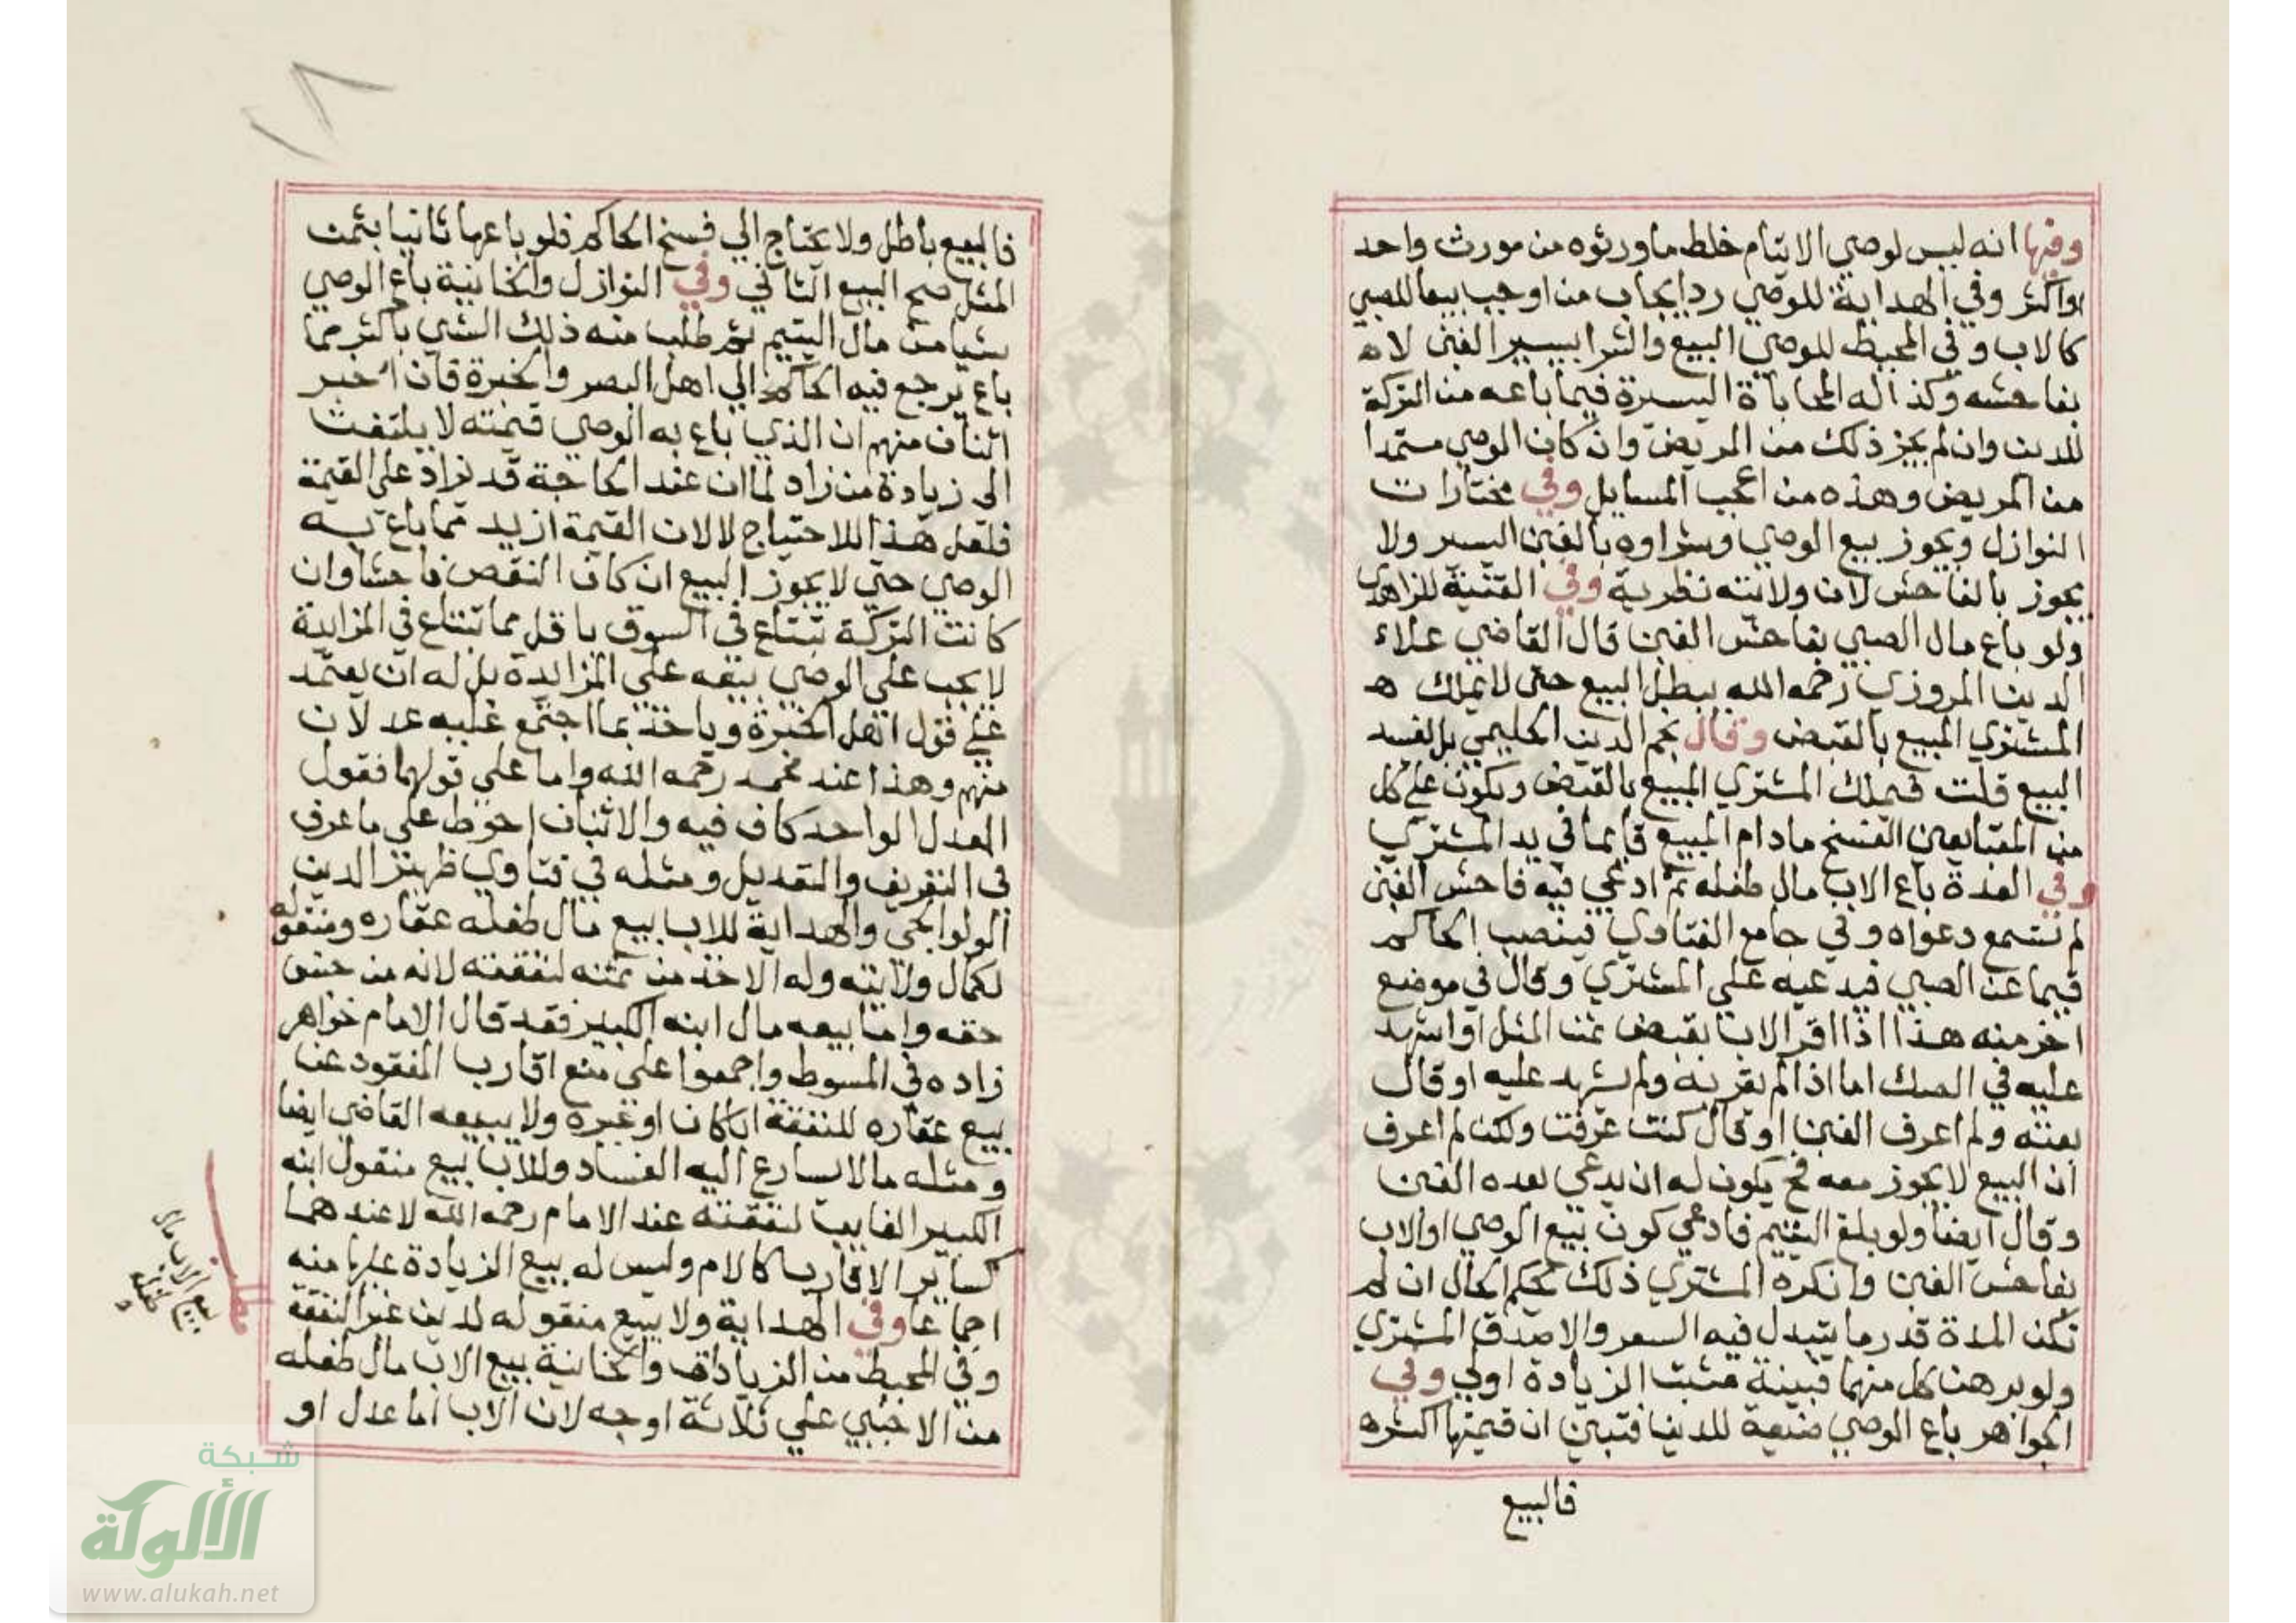 وفيها انه ليس لوصي الايتام خلط ما ورثوه من مورث واحد
او اكثر وفي الهداية للوصي رد ايجاب من اوجب بيعا للصبي
كالاب وفي المحيط للوصي البيع والشرا بيسير الغبن لا ه
بفاحشه وكذا له المحاباة اليسيرة فيما باعه من التركة
للدين وان لم يجز ذلك من المريض وان كان الوصي مستمدا
من المريض وهذه من اعجب المسايل وفي مختارات
النوازل ويجوز بيع الوصي وشراوه بالغبن اليسير ولا
يجوز بالفاحش لان ولايته نظرية وفي القنية للزاهدي
ولو باع مال الصبي بفاحش الغبن قال القاضي علاء
الدين المروزي رحمه الله يبطل البيع حتى لا يملك ه
المشتري المبيع بالقبض وقال نجم الدين الحليمي بل يفسد
البيع قلت فيملك المشتري المبيع بالقبض ويكون علي كل
من المتبايعين الفسخ مادام المبيع قايما في يد المشتري
وفي العدة باع الاب مال طفله ثم ادعي فيه فاحش الغبن
لم تسمع دعواه وفي جامع الفتاوي فينصب الحاكم
قيما عن الصبي فيدعيه علي المشتري وقال في موضع
اخر منه هذا اذا اقر الاب بقبض ثمن المثل او اشهد
عليه في الصك اما اذا لم يقر به ولم يشهد عليه او قال
بعته ولم اعرف الغبن او قال كنت عرفت ولكن لم اعرف
ان البيع لا يجوز معه فح يكون له ان يدعي بعده الغبن
وقال ايضا ولو بلغ اليتيم فادعي كون بيع الوصي او الاب
بفاحش الغبن وانكره المشتري ذلك يحكم الحال ان لم
تكن المدة قدر ما يتبدل فيه السعر والا صدق المشتري
ولو برهن كل منهما فبينة مثبت الزيادة اولي وفي
الجواهر باع الوصي ضيعة للدين فتبين ان قيمتها اكثر ه
فالبيع
فالبيع باطل ولا يحتاج الي فسخ الحاكم فلو باعها ثانيا بثمن
المثل صح البيع الثاني وفي النوازل والخانية باع الوصي
شيا من مال اليتيم ثم طلب منه ذلك الشي باكثر مما
باع يرجع فيه الحاكم الي اهل البصر والخبرة فان اخبر
اثنان منهم ان الذي باع به الوصي قيمته لا يلتفت
الى زيادة من زاد لما ان عند الحاجة قد يزاد علي القيمة
فلعل هذا للاحتياج لا لان القيمة ازيد مما باع به
الوصي حتي لا يجوز البيع ان كان النقص فاحشا وان
كانت التركة تبتاع في السوق باقل مما تبتاع في المزايدة
لا يجب علي الوصي بيعه علي المزايدة بل له ان يعتمد
علي قول اهل الخبرة وياخذ بما اجتمع عليه عدلان
منهم وهذا عند محمد رحمه الله واما علي قولهما فقول
العدل الواحد كاف فيه والاثنان احوط علي ما عرف
في التعريف والتعديل ومثله في فتاوي ظهير الدين
الولوالجي والهداية للاب بيع مال طفله عقاره ومنقوله
لكمال ولايته وله الاخذ من ثمنه لنفقته لانه من جنس
حقه واما بيعه مال ابنه الكبير فقد قال الامام خواهر
زاده في المسوط واجمعوا علي منع اقارب المفقود عن
بيع عقاره للنفقة اباكان او غيره ولا يبيعه القاضي ايضا
ومثله مالا يسارع اليه الفساد وللاب بيع منقول ابنه
الكبير الغايب لنفقته عند الامام رحمه الله لا عندهما
كساير الاقارب كالام وليس له بيع الزيادة عليها منه
اجماعا وفي الهداية ولا يبيع منقوله لدين غير النفقة
وفي المحيط من الزيادات والخانية بيع الاب مال طفله
من الاجنبي علي ثلاثة اوجه لان الاب اما عدل او
مطلب
بيع الاب مال
طفله
شبكة
الألوكة
www.alukah.net